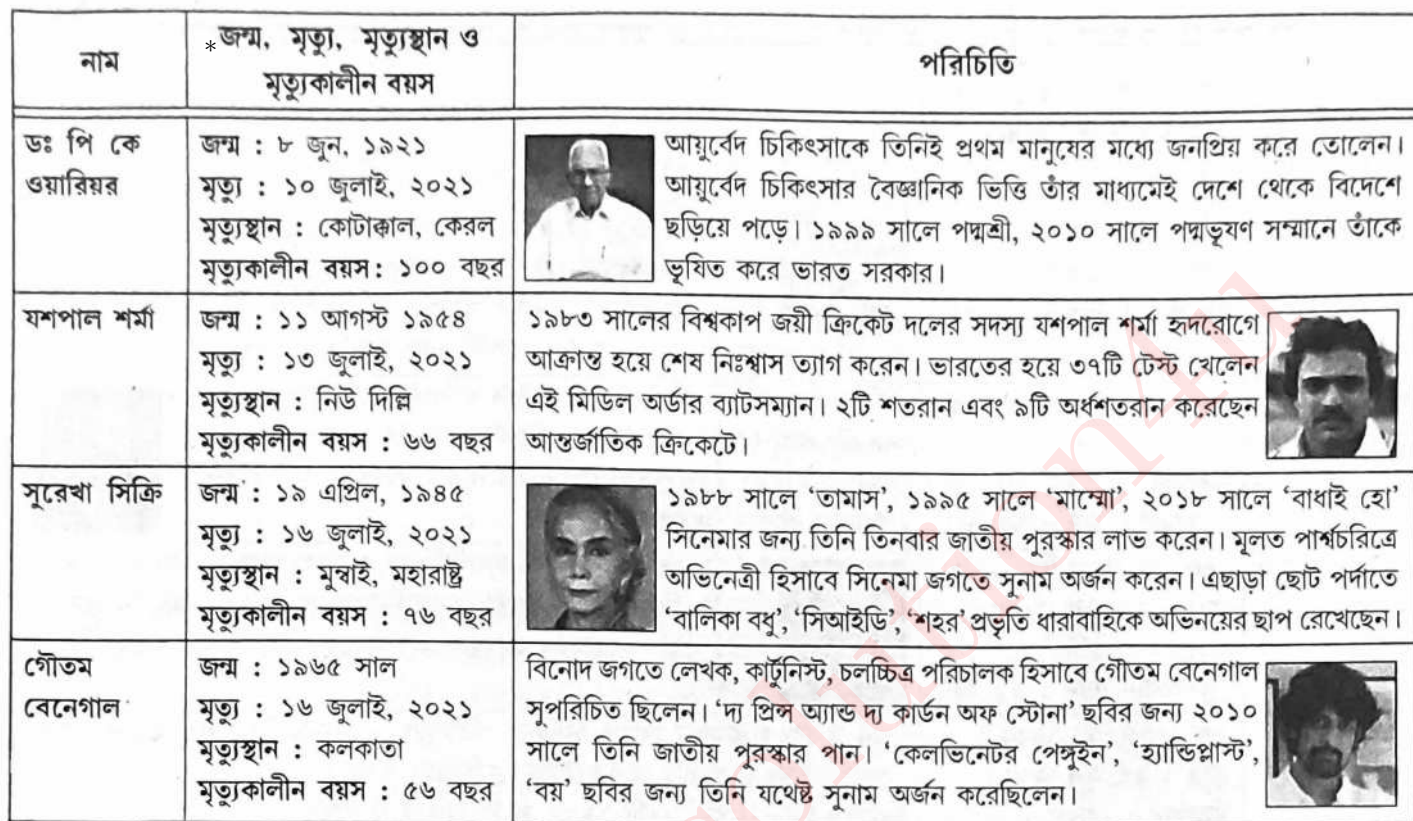 নাম
*জন্ম, মৃত্যু, মৃত্যুস্থান ও
মৃত্যুকালীন বয়স
পরিচিতি
ডঃ পি কে
ওয়ারিয়র
জন্ম : ৮ জুন, ১৯২১
মৃত্যু : ১০ জুলাই, ২০২১
মৃত্যুস্থান : কোটাক্কাল, কেরল
মৃত্যুকালীন বয়স : ১০০ বছর
আয়ুর্বেদ চিকিৎসাকে তিনিই প্রথম মানুষের মধ্যে জনপ্রিয় করে তোলেন।
আয়ুর্বেদ চিকিৎসার বৈজ্ঞানিক ভিত্তি তাঁর মাধ্যমেই দেশে থেকে বিদেশে
ছড়িয়ে পড়ে। ১৯৯৯ সালে পদ্মশ্রী, ২০১০ সালে পদ্মভূষণ সম্মানে তাঁকে
ভূষিত করে ভারত সরকার।
যশপাল শর্মা
জন্ম : ১১ আগস্ট ১৯৫৪
মৃত্যু : ১৩ জুলাই, ২০২১
মৃত্যুস্থান : নিউ দিল্লি
মৃত্যুকালীন বয়স : ৬৬ বছর
১৯৮৩ সালের বিশ্বকাপ জয়ী ক্রিকেট দলের সদস্য যশপাল শর্মা হৃদরোগে
আক্রান্ত হয়ে শেষ নিঃশ্বাস ত্যাগ করেন। ভারতের হয়ে ৩৭টি টেস্ট খেলেন
এই মিডিল অর্ডার ব্যাটসম্যান। ২টি শতরান এবং ৯টি অর্ধশতরান করেছেন
আন্তর্জাতিক ক্রিকেটে।
সুরেখা সিক্রি
জন্ম : ১৯ এপ্রিল, ১৯৪৫
মৃত্যু : ১৬ জুলাই, ২০২১
মৃত্যুস্থান : মুম্বাই, মহারাষ্ট্র
মৃত্যুকালীন বয়স : ৭৬ বছর
১৯৮৮ সালে ‘তামাস’, ১৯৯৫ সালে ‘মাম্মো’, ২০১৮ সালে ‘বাধাই হো’
সিনেমার জন্য তিনি তিনবার জাতীয় পুরস্কার লাভ করেন। মূলত পার্শ্বচরিত্রে
অভিনেত্রী হিসাবে সিনেমা জগতে সুনাম অর্জন করেন। এছাড়া ছোট পর্দাতে
‘বালিকা বধু’, ‘সিআইডি’, ‘শহর’ প্রভৃতি ধারাবাহিকে অভিনয়ের ছাপ রেখেছেন।
গৌতম
বেনেগাল
জন্ম : ১৯৬৫ সাল
মৃত্যু : ১৬ জুলাই, ২০২১
মৃত্যুস্থান : কলকাতা
মৃত্যুকালীন বয়স : ৫৬ বছর
বিনোদ জগতে লেখক, কার্টুনিস্ট, চলচ্চিত্র পরিচালক হিসাবে গৌতম বেনেগাল
সুপরিচিত ছিলেন। ‘দ্য প্রিন্স অ্যান্ড দ্য কার্ডন অফ স্টোনা’ ছবির জন্য ২০১০
সালে তিনি জাতীয় পুরস্কার পান। ‘কেলভিনেটর পেঙ্গুইন’, ‘হ্যান্ডিপ্লাস্ট’,
‘বয়’ ছবির জন্য তিনি যথেষ্ট সুনাম অর্জন করেছিলেন।
olution4u